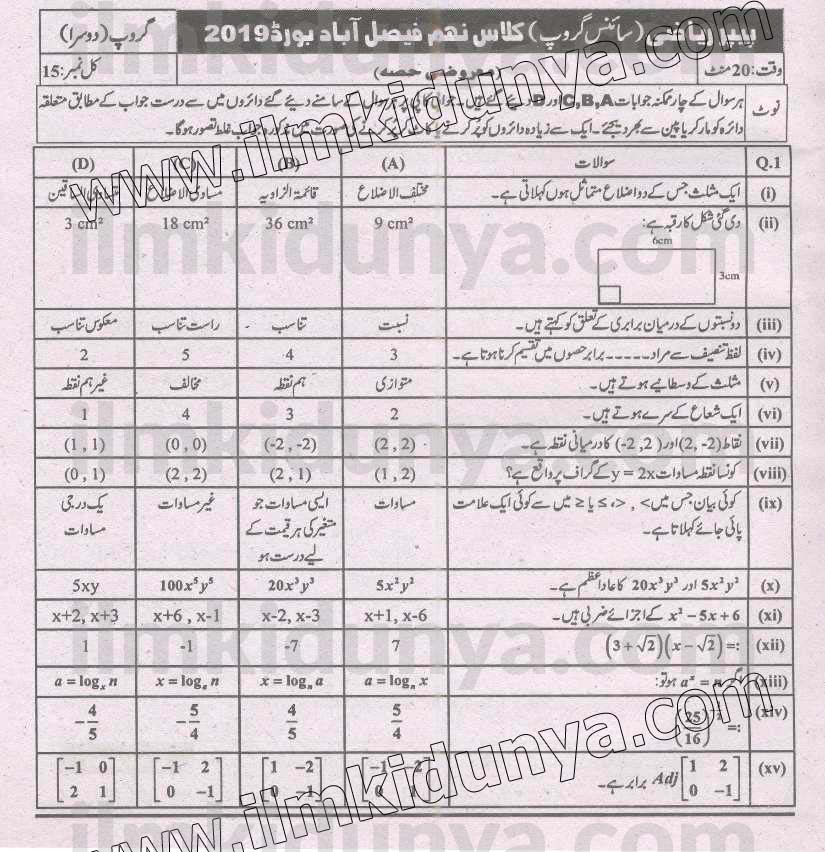 پیپر ریاضی (سائنس گروپ) کلاس نہم فیصل آباد بورڈ 2019 گروپ (دوسرا)
وقت: 20 منٹ (معروضی حصہ) کل نمبر: 15
نوٹ ہر سوال کے چار ممکنہ جوابات C,B,A اور D دیئے گئے ہیں۔ جوابی کاپی پر ہر سوال کے سامنے دیئے گئے دائروں میں سے درست جواب کے مطابق متعلقہ
دائرہ کو مارکر یا پین سے بھر دیجئے۔ ایک سے زیادہ دائروں کو پر کرنے یا کاٹ کر پر کرنے کی صورت میں مذکورہ جواب غلط تصور ہوگا۔
Q.1 سوالات (A) (B) (C) (D)
(i) ایک مثلث جس کے دو اضلاع متماثل ہوں کہلاتی ہے۔ مختلف الاضلاع قائمۃ الزاویہ مساوی الاضلاع مساوی الساقین
(ii) دی گئی شکل کا رقبہ ہے: 9 cm² 36 cm² 18 cm² 3 cm²
6cm
3cm
(iii) دو نسبتوں کے درمیان برابری کے تعلق کو کہتے ہیں۔ نسبت تناسب راست تناسب معکوس تناسب
(iv) لفظ تنصیف سے مراد ۔۔۔۔۔ برابر حصوں میں تقسیم کرنا ہوتا ہے۔ 3 4 5 2
(v) مثلث کے وسطانیے ہوتے ہیں۔ متوازی ہم نقطہ مخالف غیر ہم نقطہ
(vi) ایک شعاع کے سرے ہوتے ہیں۔ 2 3 4 1
(vii) نقاط (2, -2) اور (-2, 2) کا درمیانی نقطہ ہے۔ (2, 2) (-2, -2) (0, 0) (1, 1)
(viii) کونسا نقطہ مساوات y = 2x کے گراف پر واقع ہے؟ (1, 2) (2, 1) (2, 2) (0, 1)
(ix) کوئی بیان جس میں >, <, ≤ یا ≥ میں سے کوئی ایک علامت پائی جائے کہلاتا ہے۔ مساوات ایسی مساوات جو متغیر کی ہر قیمت کے لیے درست ہو غیر مساوات یک درجی مساوات
(x) 5x²y² اور 20x³y³ کا عاد اعظم ہے۔ 5x²y² 20x³y³ 100x⁵y⁵ 5xy
(xi) x² − 5x + 6 کے اجزائے ضربی ہیں۔ x+1, x-6 x-2, x-3 x+6 , x-1 x+2, x+3
(xii) (3 + √2)(x − √2) =: 7 -7 -1 1
(xiii) اگر aˣ = n ہو تو: a = logₙ x x = logₙ a x = logₐ n a = logₓ n
(xiv) (25/16) =: 5/4 4/5 −5/4 −4/5
(xv) Adj [1 2; 0 −1] برابر ہے۔ [−1 −2; 0 1] [1 −2; 0 −1] [−1 2; 0 −1] [−1 0; 2 1]
www.ilmkidunya.com
www.ilmkidunya.com
ilmkidunya.com
ilmkidunya.com
ilmkidunya.com
ilmkidunya.com